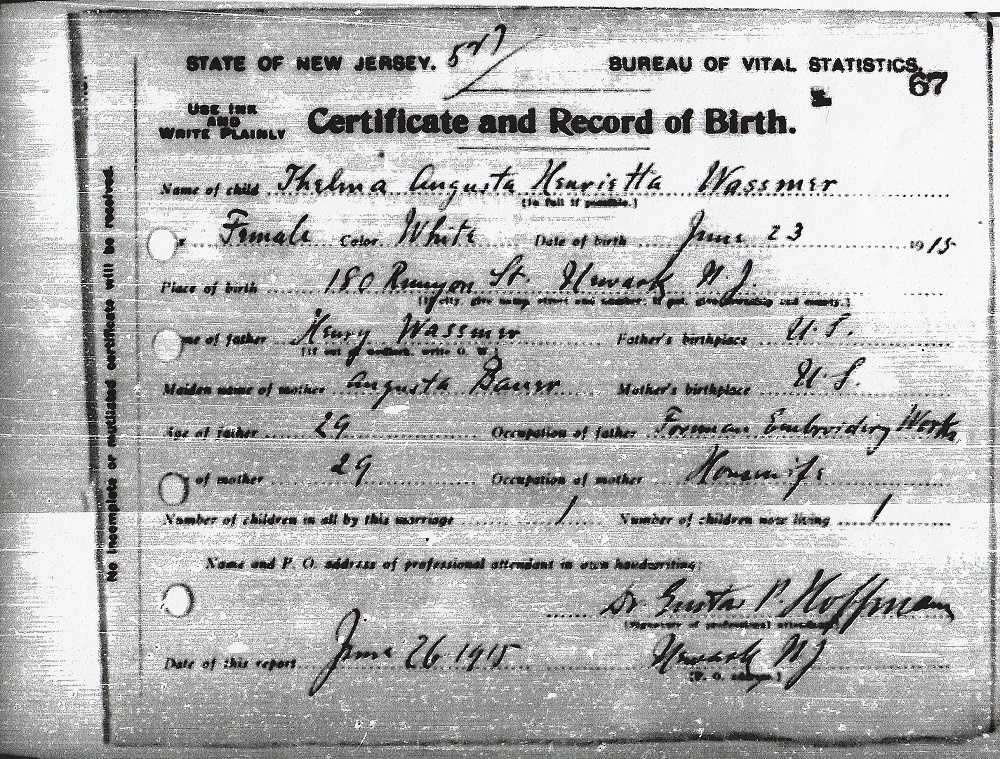 STATE OF NEW JERSEY. 527 BUREAU OF VITAL STATISTICS.
67
USE INK
AND
WRITE PLAINLY
Certificate and Record of Birth.
Name of child Thelma Augusta Henrietta Wassmer
(In full if possible.)
Female Color White Date of birth June 23 1915
Place of birth 180 Runyon St. Newark N.J.
(If city, give name, street and number. If not, give township and county.)
me of father Henry Wassmer Father's birthplace U.S.
(If out of wedlock, write O. W.)
Maiden name of mother Augusta Bauer Mother's birthplace U.S.
Age of father 29 Occupation of father Foreman Embroidery Works
of mother 29 Occupation of mother Housewife
Number of children in all by this marriage 1 Number of children now living 1
Name and P. O. address of professional attendant in own handwriting:
Dr. Gustav P. Hoffmann
(Signature of professional attendant)
Date of this report June 26 1915 Newark NJ
(P. O. address.)
No incomplete or mutilated certificate will be received.